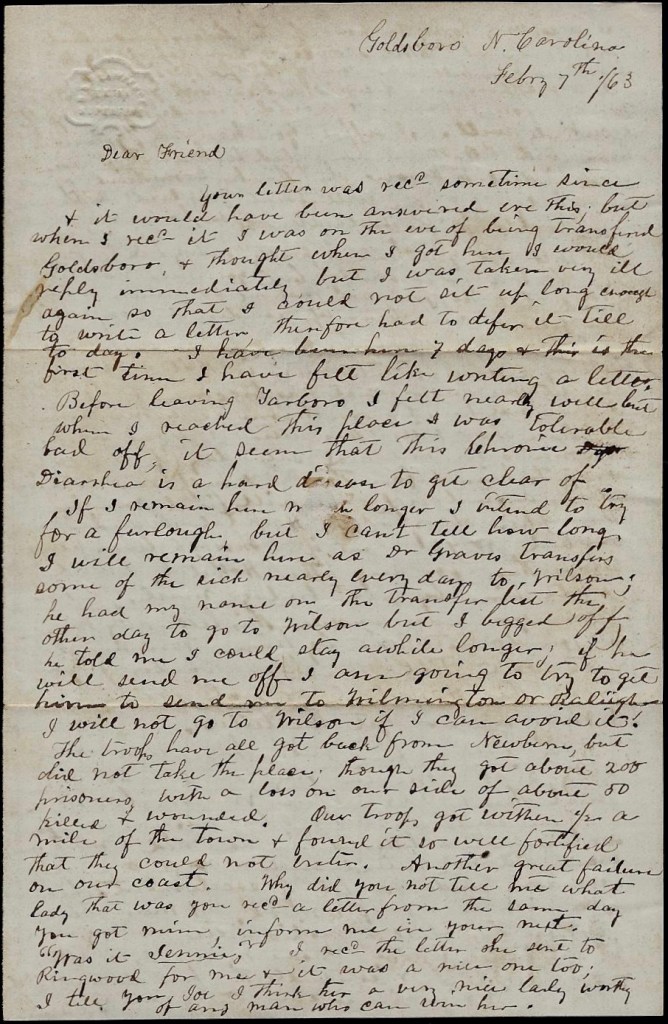 Goldsboro N. Carolina
Febry 7th /63
Dear Friend
Your letter was recd sometime since
& it would have been answered ere this; but
when I recd it I was on the eve of being transfered
Goldsboro, & thought when I got here I would
reply immediately but I was taken very ill
again so that I could not sit up long enough
to write a letter therefore had to defer it till
to day. I have been here 7 days & this is the
first time I have felt like writing a letter.
Before leaving Tarboro I felt nearly well but
when I reached this place I was tolerable
bad off, it seem that this Chronic
Diarrhea is a hard disease to get clear of.
If I remain here longer I intend to try
for a furlough, but I can't tell how long
I will remain here as Dr Graves transfers
some of the sick nearly every day to Wilson;
he had my name on the transfer list the
other day to go to Wilson but I begged off,
he told me I could stay awhile longer; if he
will send me off I am going to try to get
him to send me to Wilmington or Raleigh
I will not go to Wilson if I can avoid it.
The troops have all got back from Newbern, but
did not take the place; though they got about 200
prisoners, with a loss on our side of about 50
killed & wounded. Our troops got within 1/2 a
mile of the town & found it so well fortified
that they could not enter. Another great failure
on our coast. Why did you not tell me what
lady that was you recd a letter from the same day
you got mine, inform me in your next.
"Was it Jennie," I recd the letter she sent to
Ringwood for me & it was a nice one too;
I tell you Joe I think her a very nice lady worthy
of any man who can win her.